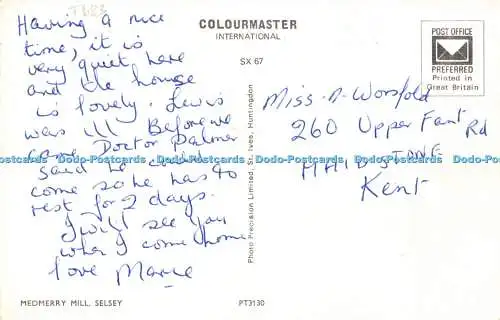 Having a nice
time, it is
very quiet here
and the house
is lovely. Lewis
was ill Before we
came Doctor Palmer
said he could
come so he has to
rest for 2 days.
I will see you
when I come home
love Marie
MEDMERRY MILL, SELSEY
COLOURMASTER
INTERNATIONAL
SX 67
Photo Precision Limited, St. Ives, Huntingdon
PT3130
POST OFFICE
PREFERRED
Printed in
Great Britain
Miss A Worsfold
260 Upper Fant Rd
MAIDSTONE
Kent
Dodo-Postcards Dodo-Postcards Dodo-Postcards Dodo-Postcards